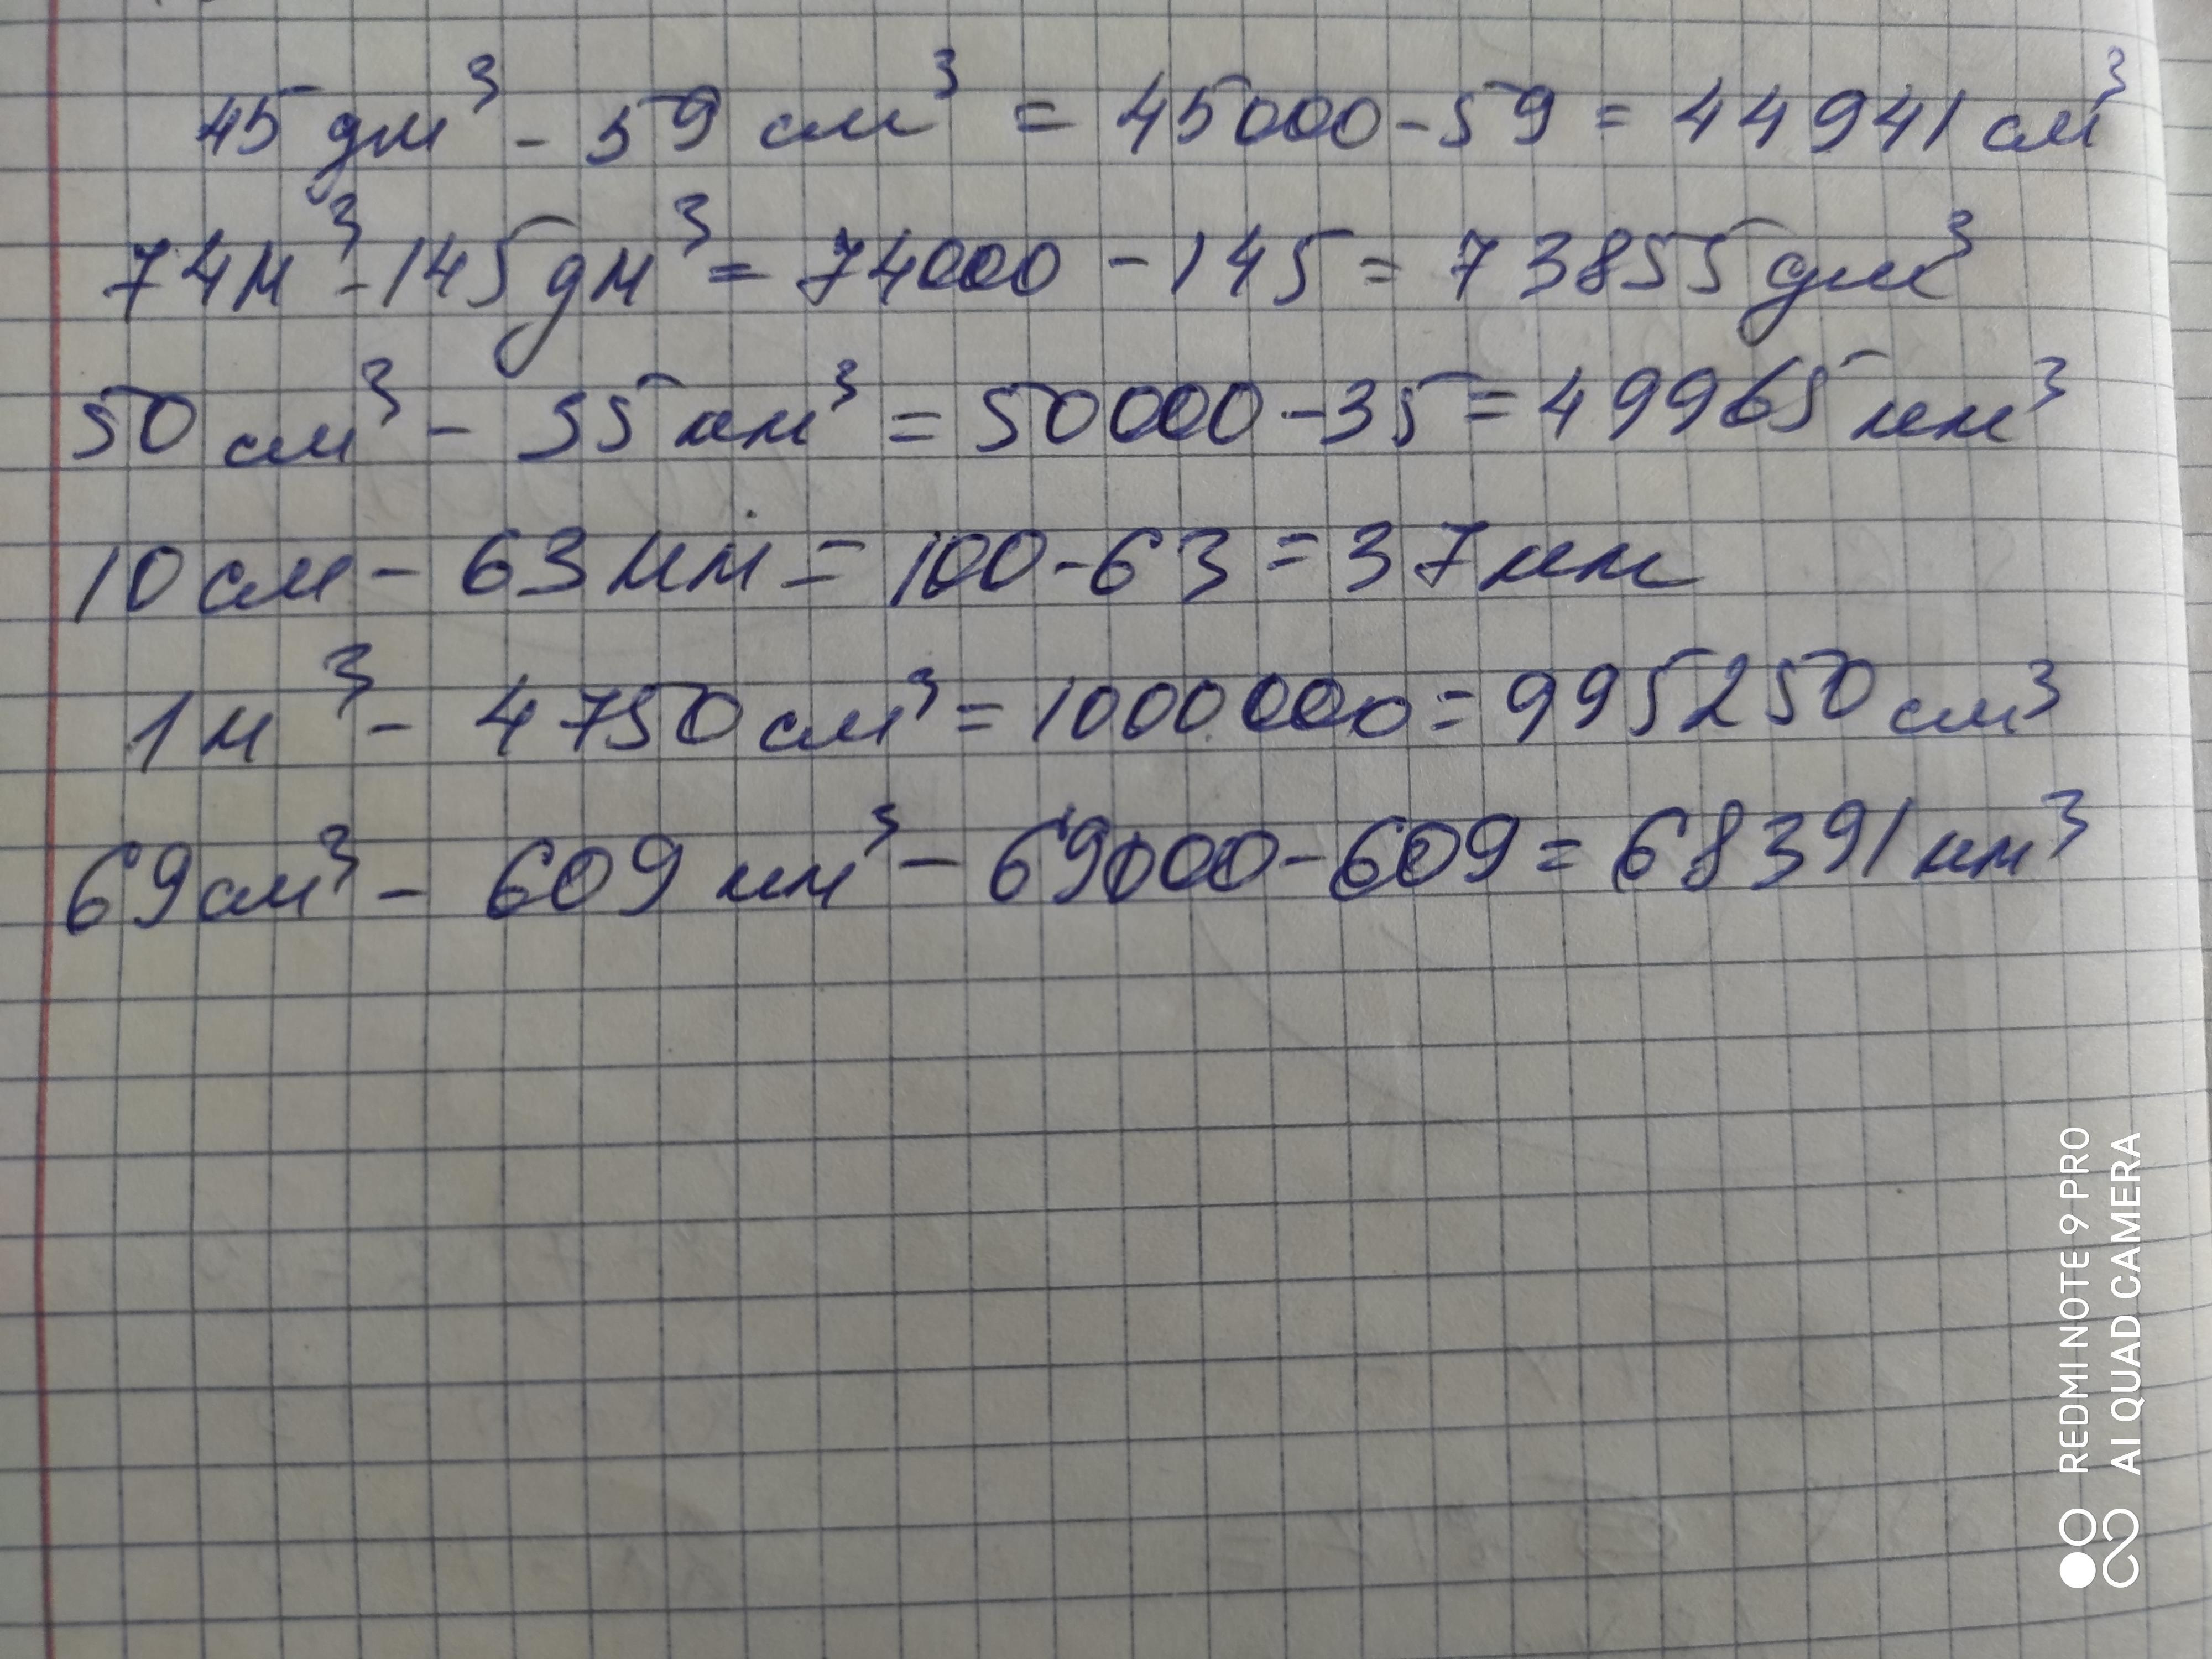 45 дм³ - 59 см³ = 45000 - 59 = 44941 см³
74 м³ - 145 дм³ = 74000 - 145 = 73855 дм³
50 см³ - 35 мм³ = 50000 - 35 = 49965 мм³
10 см - 63 мм = 100 - 63 = 37 мм
1 м³ - 4750 см³ = 1000000 = 995250 см³
69 см³ - 609 мм³ - 69000 - 609 = 68391 мм³
REDMI NOTE 9 PRO
AI QUAD CAMERA